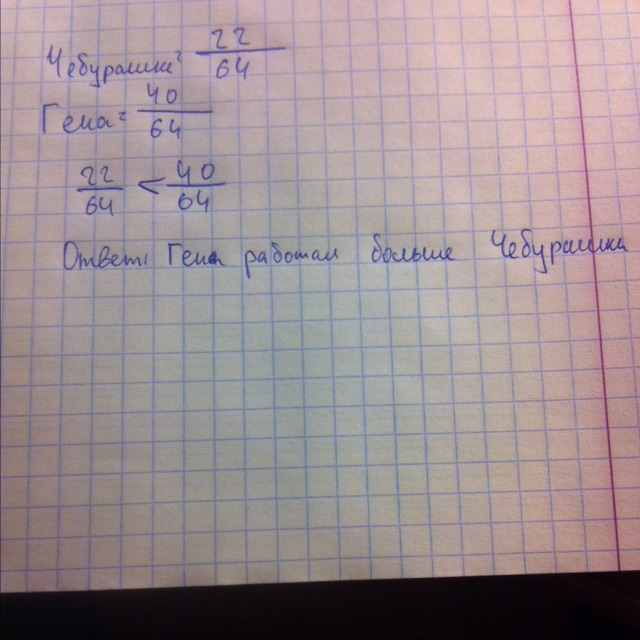 Чебурашка = 22/64
Гена = 40/64
22/64 < 40/64
Ответ: Гена работал больше Чебурашка